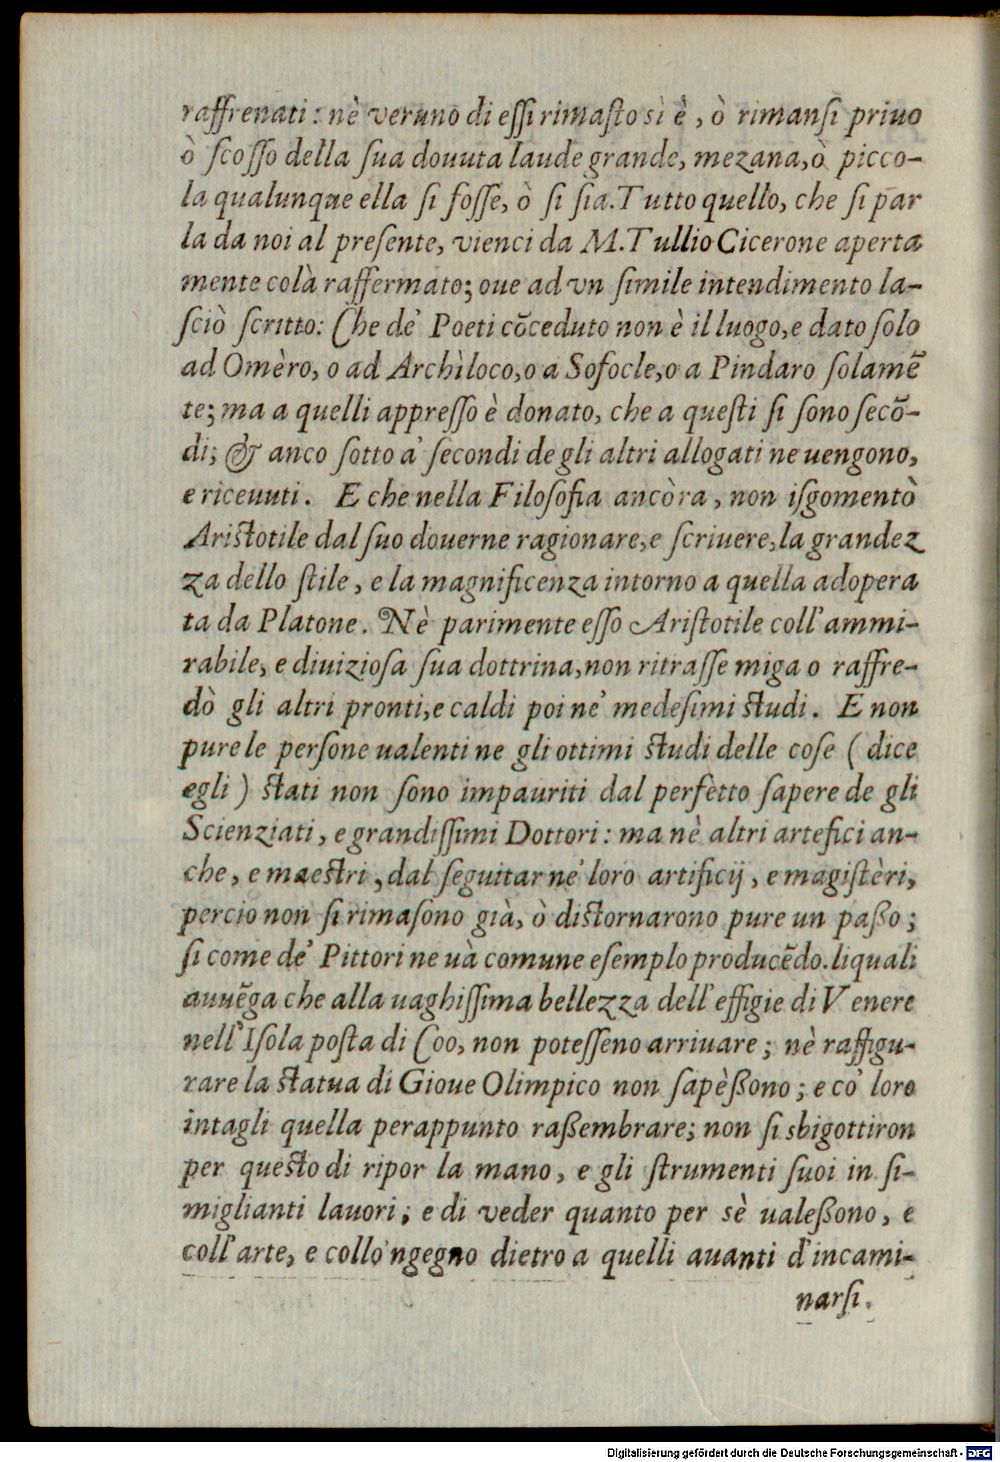 raffrenati: nè veruno di eſſi rimaſto sì è, ò rimanſi priuo
ò ſcoſſo della ſua douuta laude grande, mezana, ò picco-
la qualunque ella ſi foſſe, ò ſi ſia. Tutto quello, che ſi par
la da noi al preſente, vienci da M. Tullio Cicerone aperta
mente colà raffermato; oue ad vn ſimile intendimento la-
ſciò ſcritto: Che de' Poeti cōceduto non è il luogo, e dato ſolo
ad Omèro, o ad Archìloco, o a Sofocle, o a Pindaro ſolamẽ
te; ma a quelli appreſſo è donato, che a queſti ſi ſono ſecō-
di; & anco ſotto a' ſecondi de gli altri allogati ne uengono,
e riceuuti. E che nella Filoſofia ancòra, non iſgomentò
Ariſtotile dal ſuo douerne ragionare, e ſcriuere, la grandez
za dello ſtile, e la magnificenza intorno a quella adopera
ta da Platone. Nè parimente eſſo Ariſtotile coll'ammi-
rabile, e diuizioſa ſua dottrina, non ritraſſe miga o raffre-
dò gli altri pronti, e caldi poi ne' medeſimi ſtudi. E non
pure le perſone ualenti ne gli ottimi ſtudi delle coſe (dice
egli) ſtati non ſono impauriti dal perfetto ſapere de gli
Scienziati, e grandiſſimi Dottori: ma nè altri artefici an-
che, e maeſtri, dal ſeguitar ne' loro artificij, e magiſtèri,
percio non ſi rimaſono già, ò diſtornarono pure un paßo;
ſi come de' Pittori ne uà comune eſemplo producẽdo. li quali
auuẽga che alla uaghiſſima bellezza dell'effigie di Venere
nell'Iſola poſta di Coo, non poteſſeno arriuare; nè raffigu-
rare la ſtatua di Gioue Olimpico non ſapèßono; e co' loro
intagli quella perappunto raßembrare; non ſi sbigottiron
per queſto di ripor la mano, e gli ſtrumenti ſuoi in ſi-
miglianti lauori; e di veder quanto per sè ualeßono, e
coll'arte, e collo'ngegno dietro a quelli auanti d'incami-
narſi.
Digitalisierung gefördert durch die Deutsche Forschungsgemeinschaft - DFG